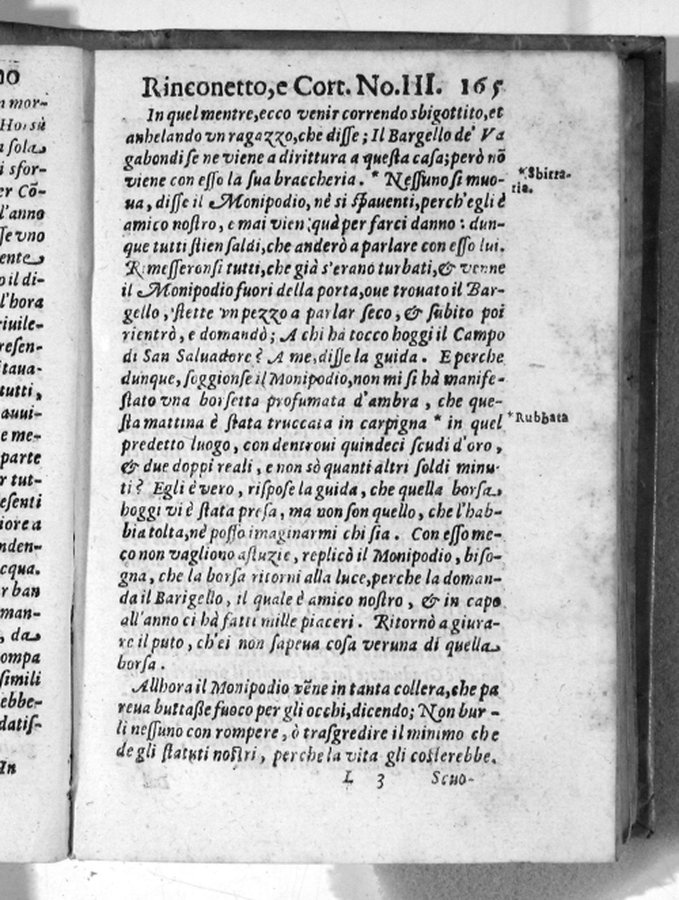 Rinconetto, e Cort. No. III. 165
In quel mentre, ecco venir correndo sbigottito, et
anhelando vn ragazzo, che disse; Il Bargello de' Va
gabondi se ne viene a dirittura a questa casa; però nō
viene con esso la sua braccheria. * Nessuno si muo-
*Sbirra-
ria.
ua, disse il Monipodio, nè si spauenti, perch'egli è
amico nostro, e mai vien quà per farci danno: dun-
que tutti stien saldi, che anderò a parlare con esso lui.
Rimesseronsi tutti, che già s'erano turbati, & venne
il Monipodio fuori della porta, oue trouato il Bar-
gello, stette vn pezzo a parlar seco, & subito poi
rientrò, e domandò; A chi hà tocco hoggi il Campo
di San Saluadore? A me, disse la guida. E perche
dunque, soggionse il Monipodio, non mi si hà manife-
stato vna borsetta profumata d'ambra, che que-
sta mattina è stata truccata in carpigna * in quel
*Rubbata
predetto luogo, con dentroui quindeci scudi d'oro,
& due doppi reali, e non sò quanti altri soldi minu-
ti? Egli è vero, rispose la guida, che quella borsa
hoggi vi è stata presa, ma non son quello, che l'hab-
bia tolta, nè posso imaginarmi chi sia. Con esso me-
co non vagliono astuzie, replicò il Monipodio, biso-
gna, che la borsa ritorni alla luce, perche la doman-
da il Barigello, il quale è amico nostro, & in capo
all'anno ci hà fatti mille piaceri. Ritornò a giura-
re il puto, ch'ei non sapeua cosa veruna di quella
borsa.
Allhora il Monipodio vēne in tanta collera, che pa
reua buttasse fuoco per gli occhi, dicendo; Non bur-
li nessuno con rompere, ò trasgredire il minimo che
de gli statuti nostri, perche la vita gli costerebbe.
L 3 Scuo-